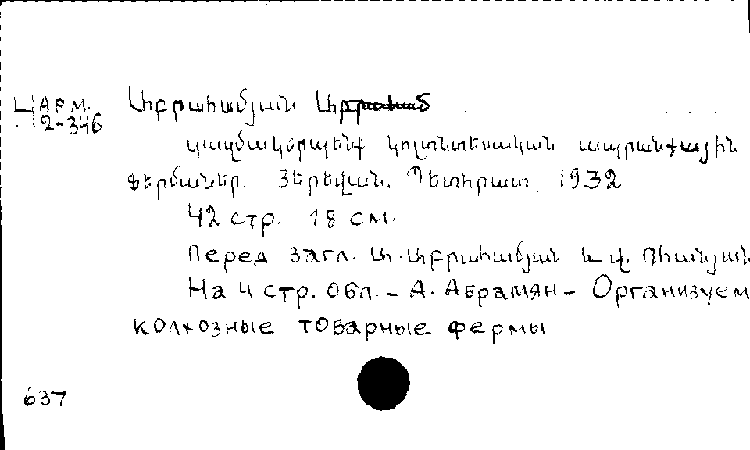 АРМ.
2-346
Աբրահամյան Ա
կազմակերպենք կոլտնտեսական ապրանքային
ֆերմաներ. Յերեվան, Պետհրատ, 1932
42 стр. 18 см.
Перед загл. Ա. Աբրահամյան և վ.
На 4 стр. обл. - А. Абрамян - Организуем
колхозные товарные фермы
637